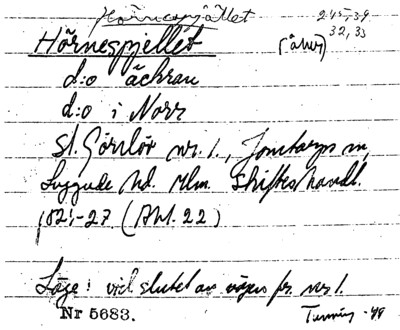 Hörnespjället
245,39
32,33
Hörnespjellet (åker)
d:o åchran
d:o i Norr
St. Görslöv nr. 1., Jonstorps sn,
Luggude hd. Mlm. Skifteshandl.
1821-27 (Akt. 22)
Läge: vid slutet av vägen fr. nr 1.
Nr 5683.